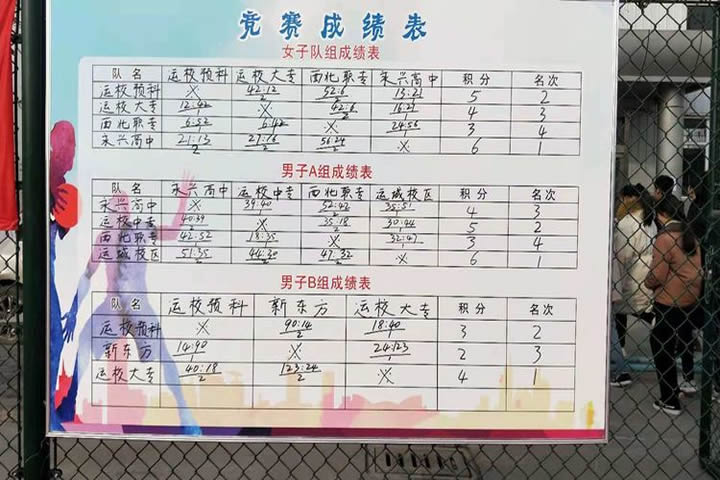 竞赛成绩表
女子队组成绩表
队名 运校预科 运校大专 西北职专 永兴高中 积分 名次
运校预科 × 42:12 2 52:6 2 13:21 1 5 2
运校大专 12:42 1 × 42:6 2 16:27 1 4 3
西北职专 6:52 1 6:42 1 × 24:56 1 3 4
永兴高中 21:13 2 27:16 2 56:24 2 × 6 1
男子A组成绩表
队名 永兴高中 运校中专 西北职专 运城校区 积分 名次
永兴高中 × 39:40 1 52:42 2 35:51 1 4 3
运校中专 40:39 2 × 35:18 2 30:44 1 5 2
西北职专 42:52 1 18:35 1 × 32:47 1 3 4
运城校区 51:35 2 44:30 2 47:32 2 × 6 1
男子B组成绩表
队名 运校预科 新东方 运校大专 积分 名次
运校预科 × 90:14 2 18:40 1 3 2
新东方 14:90 1 × 24:123 1 2 3
运校大专 40:18 2 123:24 2 × 4 1